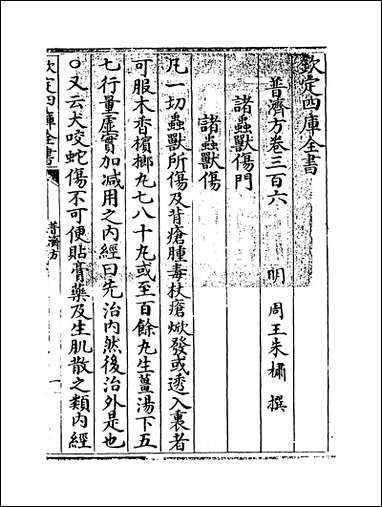 欽定四庫全書
普濟方卷三百六
明 周王朱橚 撰
諸蟲獸傷門
諸蟲獸傷
凡一切蟲獸所傷及背瘡腫毒杖瘡焮發或透入裏者
可服木香檳榔丸七八十丸或至百餘丸生薑湯下五
七行量虛實加减用之内經曰先治内然後治外是也
○又云犬咬蛇傷不可便貼膏藥及生肌散之類内經
欽定四庫全書
普濟方
一